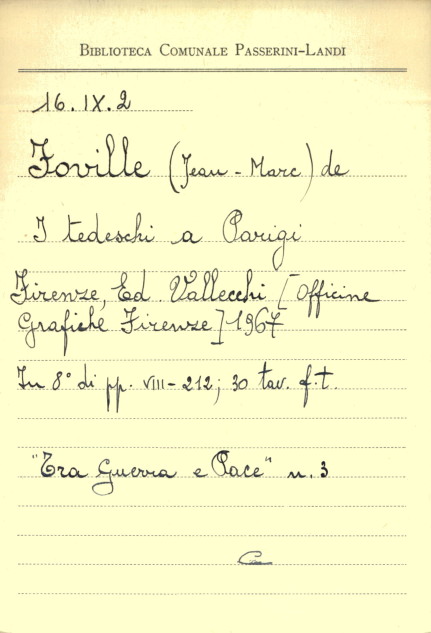 BIBLIOTECA COMUNALE PASSERINI-LANDI
16.IX.2
Foville (Jean-Marc) de
I tedeschi a Parigi
Firenze, Ed. Vallecchi [Officine
Grafiche Firenze] 1967
In 8° di pp. VIII-212; 30 tav. f.t.
"Tra Guerra e Pace" n. 3